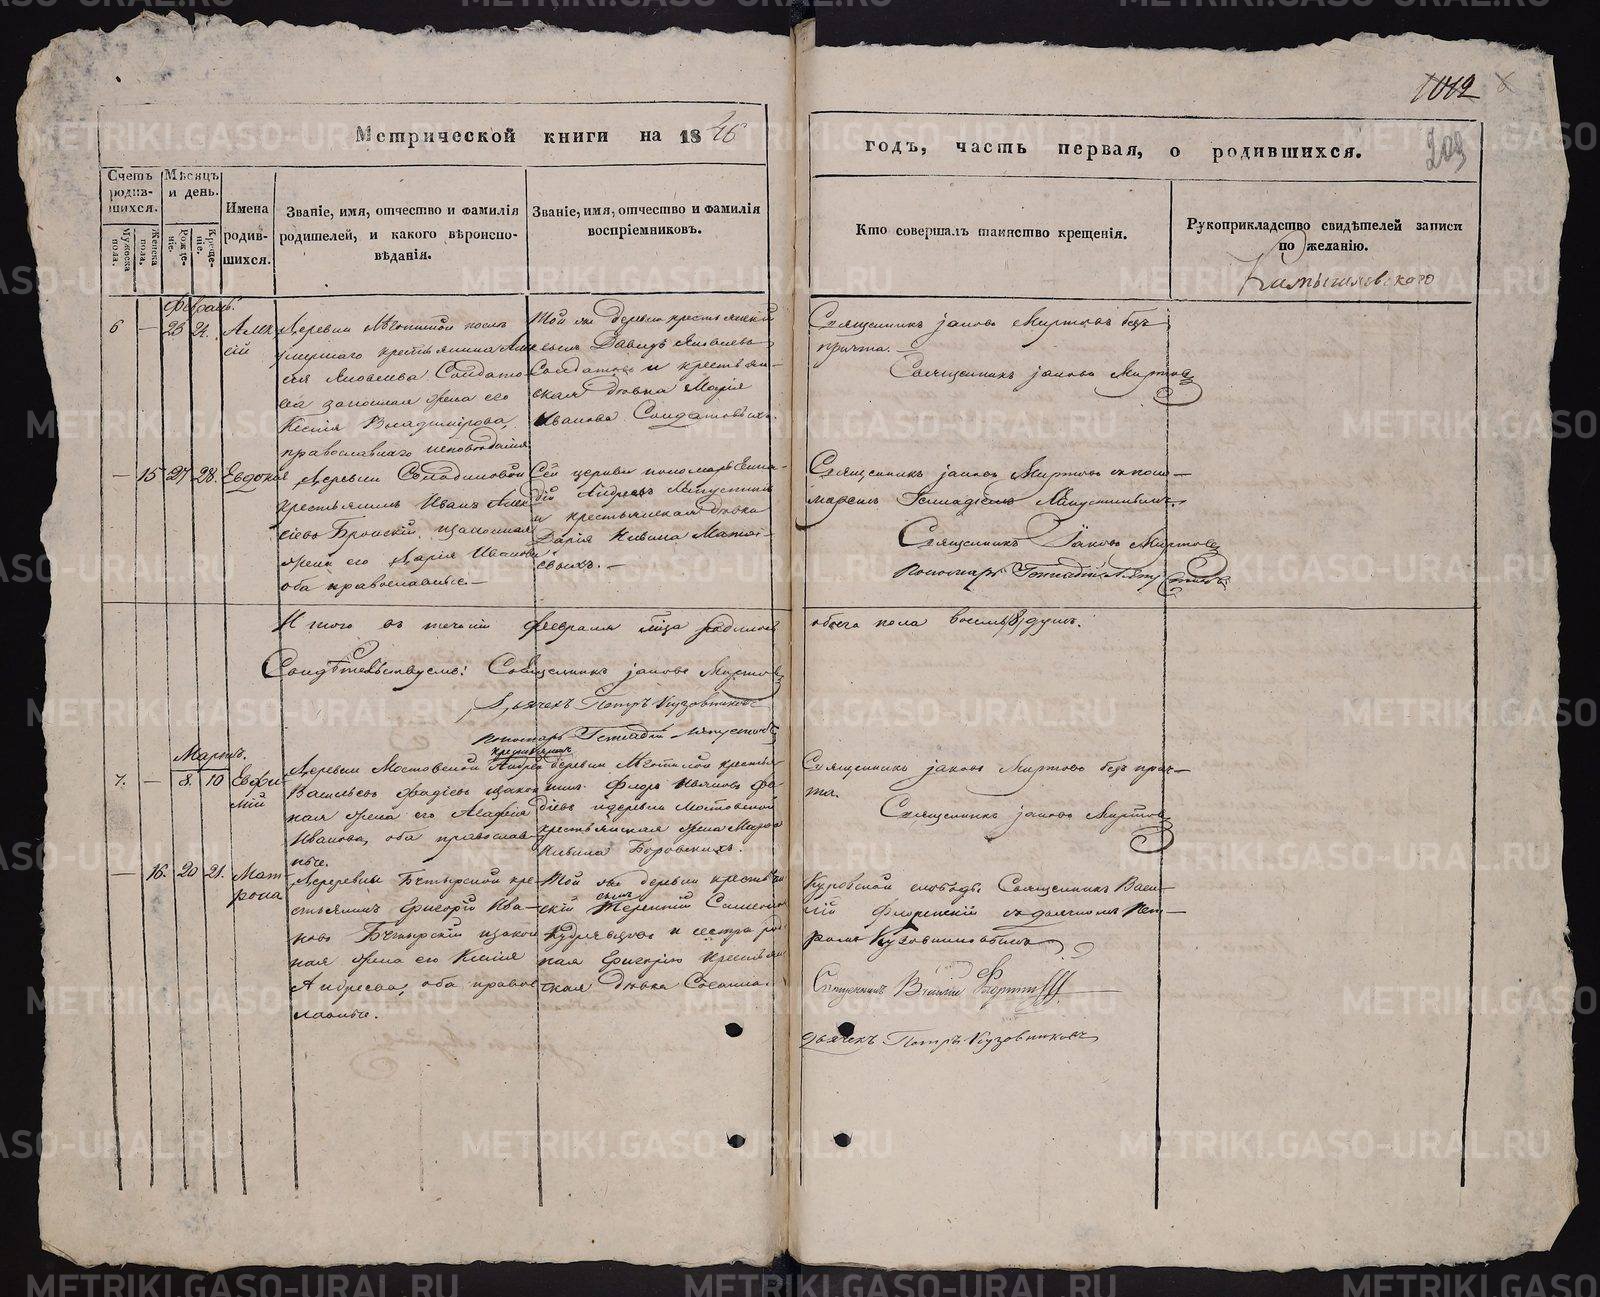 1012
203
Метрической книги на 1846
годъ, часть первая, о родившихся.
Счетъ родив-шихся.
Мужеска пола.
Женска пола.
Мѣсяцъ и день.
Рожде-нія.
Креще-нія.
Имена родив-шихся.
Званіе, имя, отчество и фамилія родителей, и какого вѣроиспо-вѣданія.
Званіе, имя, отчество и фамилія воспріемниковъ.
Кто совершалъ таинство крещенія.
Рукоприкладство свидѣтелей записи по желанію.
Камышловскаго
Февраль.
6 — 23 24.
Алек
сій
Деревни после
умершаго крестьянина Алек
сія Яковлева Солдато
ва законная жена его
Ксенія Владимірова,
православнаго исповѣданія
Той же деревни крестьянскій
сынъ Давидъ Яковлевъ
Солдатовъ и крестьян-
ская дѣвка Марія
Иванова Солдатовыхъ.
Священникъ Іаковъ Миртовъ безъ
причта.
Священникъ Іаковъ Миртовъ
— 15 27 28.
Евдокія
Деревни
крестьянинъ Иванъ Алек
сіевъ законная
жена его Дарія Иванова
оба православные.—
Сей церкви пономарь Генна-
дій Андреевъ Ляпустинъ
и крестьянская дѣвка
Дарія Никина Матвѣ-
евыхъ.—
Священникъ Іаковъ Миртовъ съ поно—
маремъ Геннадіемъ Ляпустинымъ.
Священникъ Іаковъ Миртовъ
Пономарь Геннадій Ляпустинъ
Итого въ теченіи февраля м-ца родилось
обоего пола восемь /8/ душъ.
Свидѣтельствуемъ: Священникъ Іаковъ Миртовъ
Дьячекъ Петръ Кузовниковъ
Пономарь Геннадій Ляпустинъ
Мартъ.
7. — 8. 10
Евфи
мій
крестьянинъ
Деревни Мостовской Андрей
Васильевъ законная
жена его Агафія
Иванова, оба православ-
ные.
деревни крестья-
нинъ Фларъ Ивановъ
и деревни Мостовской
крестьянская жена Марѳа
Никина Боровскихъ.
Священникъ Іаковъ Миртовъ безъ прич—
та.
Священникъ Іаковъ Миртовъ
— 16. 20 21.
Мат
рона
Деревни кре-
стьянинъ Григорій Ива—
новъ закон
ная жена его Ксенія
Андреева, оба право
славные.
Той же деревни крестьян
сынъ
скій Терентій Симеоновъ
Кудрявцовъ и сестра род
ная Григорію крестьян
ская дѣвка
Куровской слободы Священникъ Васи—
лій Флоренскій съ дьячкомъ Пет—
ромъ Кузовниковымъ
Священникъ Василій
Дьячекъ Петръ Кузовниковъ
METRIKI.GASO-URAL.RU